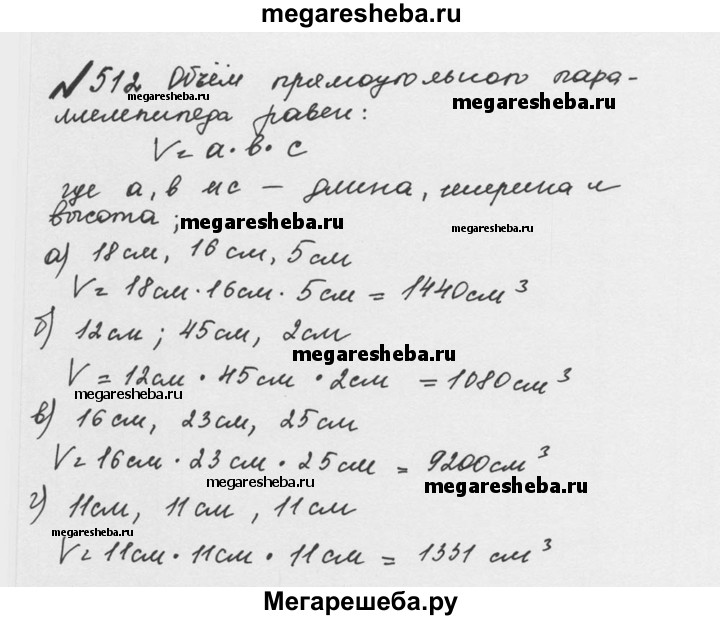 megaresheba.ru
№512 Объём прямоугольного пара-
megaresheba.ru
megaresheba.ru
ллелепипеда равен:
V = a · в · с
где а, в и с – длина, ширина и
высота ; megaresheba.ru
megaresheba.ru
а) 18см, 16см, 5см
V = 18см · 16см · 5см = 1440см³
б) 12см ; 45см, 2см
megaresheba.ru
V = 12см · 45см · 2см = 1080см³
megaresheba.ru
в) 16см, 23см, 25см
V = 16см · 23см · 25см = 9200см³
megaresheba.ru
megaresheba.ru
г) 11см, 11см , 11см
megaresheba.ru
V = 11см · 11см · 11см = 1331 см³
Мегарешеба.ру